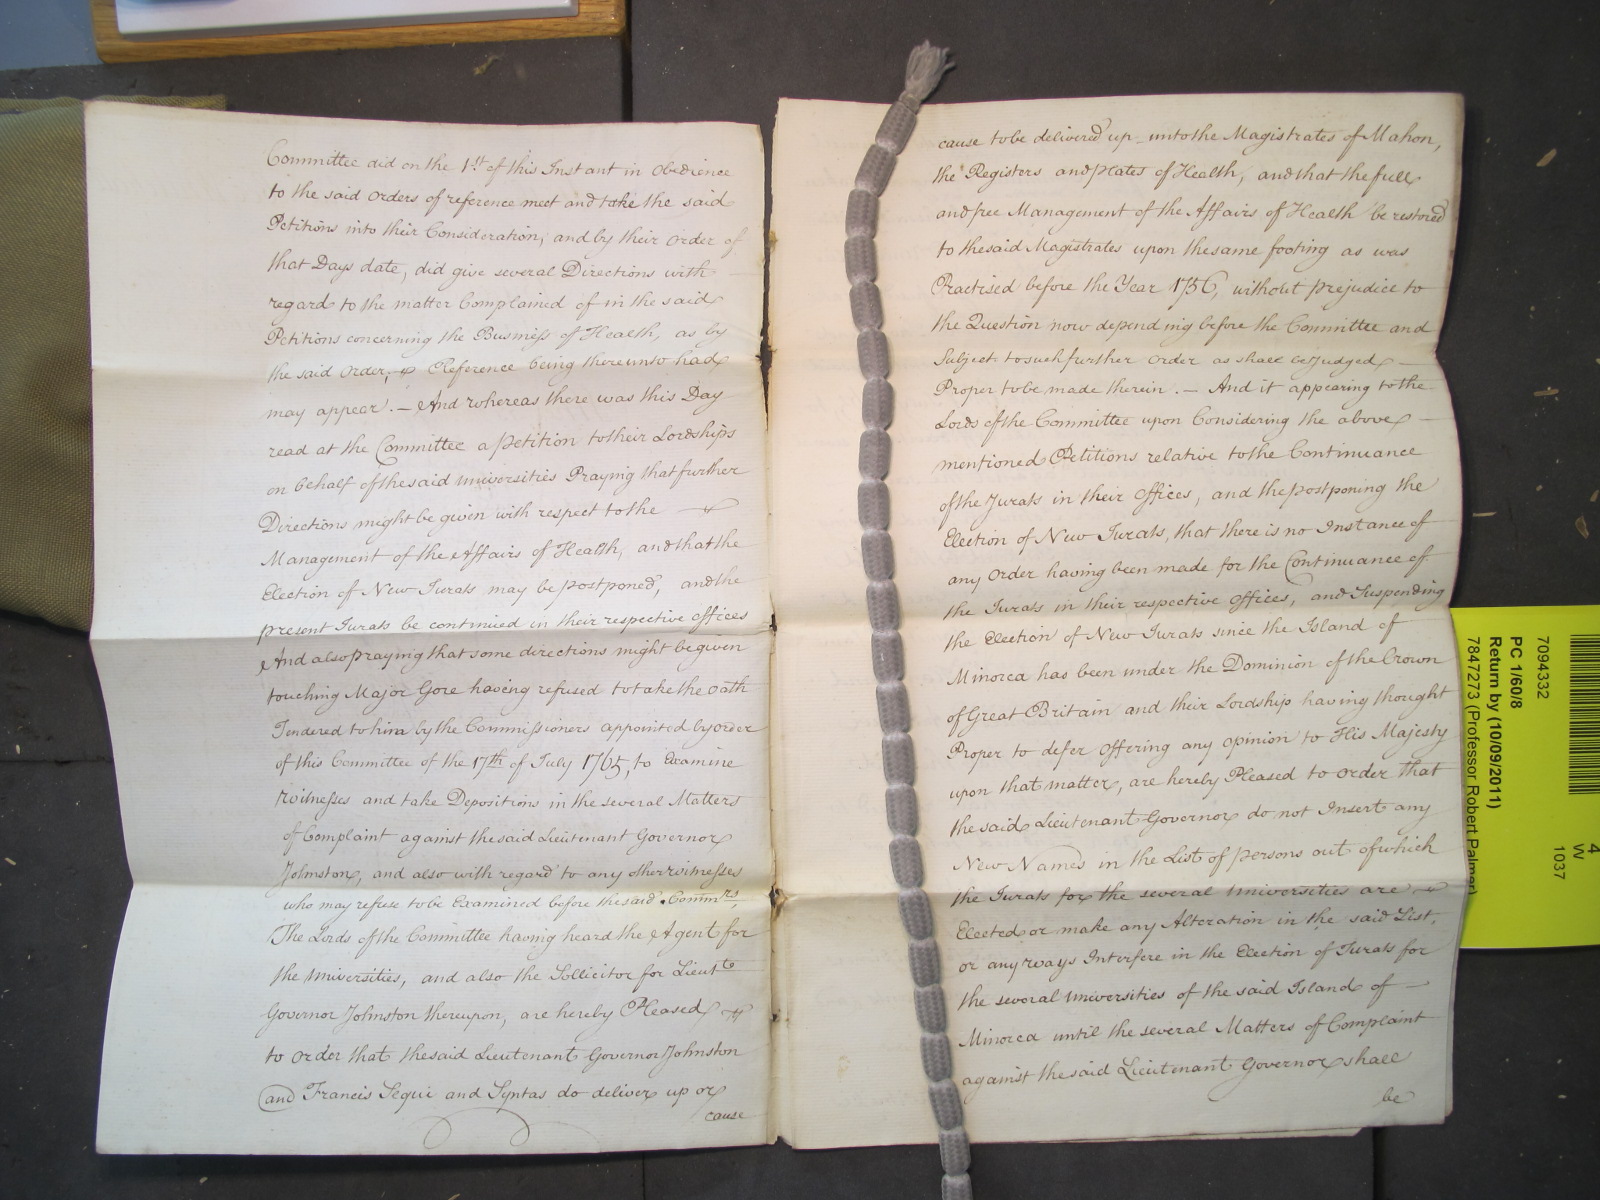 Committee did on the 1st of this Instant in Obedience
to the said Orders of reference meet and take the said
Petitions into their Consideration, and by their Order of
that Days date, did give several Directions with
regard to the matter Complained of in the said
Petitions concerning the Business of Health, as by
the said Order, Reference being thereunto had
may appear. — And whereas there was this Day
read at the Committee a petition to their Lordships
on behalf of the said Universities Praying that further
Directions might be given with respect to the
Management of the Affairs of Health, and that the
Election of New Jurats may be postponed, and the
present Jurats be continued in their respective offices
And also praying that some directions might be given
touching Major Gore having refused to take the Oath
Tendered to him by the Commissioners appointed by Order
of this Committee of the 17th of July 1765, to Examine
Witnesses and take Depositions in the several Matters
of Complaint against the said Lieutenant Governor
Johnston, and also with regard to any other witnesses
who may refuse to be Examined before the said Commrs,
The Lords of the Committee having heard the Agent for
the Universities, and also the Sollicitor for Lieut
Governor Johnston thereupon, are hereby Pleased
to order that the said Lieutenant Governor Johnston
and Francis Segui and Syntas do deliver up or
cause
cause to be delivered up unto the Magistrates of Mahon,
the Registers and plates of Health, and that the full
and free Management of the Affairs of Health be restored
to the said Magistrates upon the same footing as was
Practised before the Year 1756, without prejudice to
the Question now depending before the Committee and
Subject to such further Order as shall be Judged —
Proper to be made therein. — And it appearing to the
Lords of the Committee upon Considering the above —
mentioned Petitions relative to the Continuance
of the Jurats in their Offices, and the postponing the
Election of New Jurats, that there is no Instance of
any Order having been made for the Continuance of
the Jurats in their respective Offices, and Suspending
the Election of New Jurats since the Island of
Minorca has been under the Dominion of the Crown
of Great Britain and their Lordship having thought
Proper to defer Offering any opinion to His Majesty
upon that matter, are hereby Pleased to order that
the said Lieutenant Governor do not Insert any
New Names in the List of persons out of which
the Jurats for the several Universities are
Elected, or make any Alteration in the said List,
or any ways Interfere in the Election of Jurats for
the several Universities of the said Island of —
Minorca until the several Matters of Complaint
against the said Lieutenant Governor shall
be
7094332
PC 1/60/8
Return by (10/09/2011)
7847273 (Professor Robert Palmer)
4
W
1037